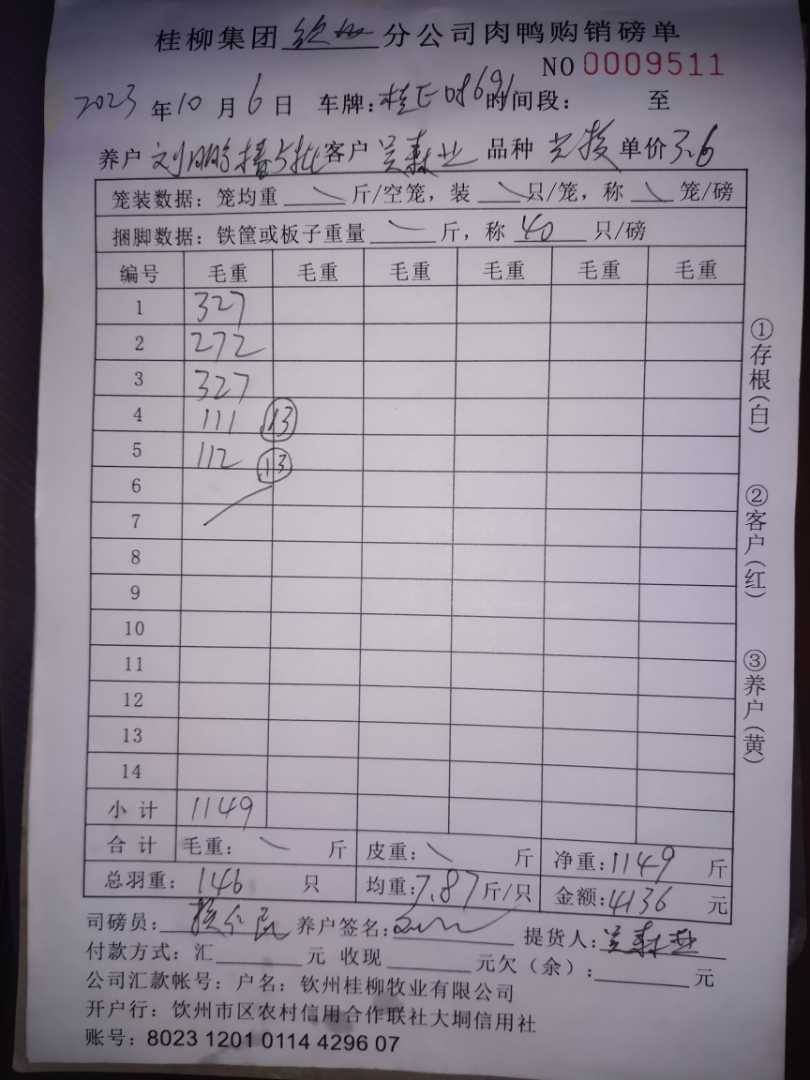 桂柳集团 钦州 分公司肉鸭购销磅单
NO 0009511
2023 年 10 月 6 日 车牌: 时间段: 至
养户 刘 客户 吴森业 品种 单价 3.6
笼装数据: 笼均重 斤/空笼, 装 只/笼, 称 笼/磅
捆脚数据: 铁筐或板子重量 斤, 称 40 只/磅
编号 毛重 毛重 毛重 毛重 毛重 毛重
1 327
2 272
3 327
4 111 13
5 112 13
6
7
8
9
10
11
12
13
14
小计 1149
合计 毛重: 斤 皮重: 斤 净重: 1149 斤
总羽重: 146 只 均重: 7.87 斤/只 金额: 4136 元
司磅员: 养户签名: 提货人: 吴森业
付款方式: 汇 元 收现 元欠(余): 元
公司汇款帐号: 户名: 钦州桂柳牧业有限公司
开户行: 钦州市区农村信用合作联社大垌信用社
账号: 8023 1201 0114 4296 07
①存根(白)
②客户(红)
③养户(黄)